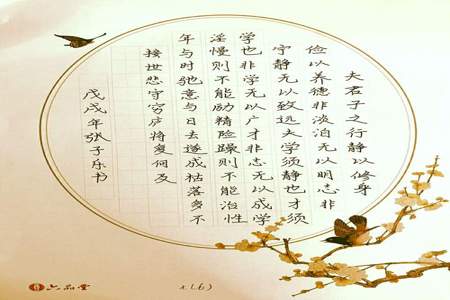 夫君子之行静以修身
俭以养德非淡泊无以明志非
宁静无以致远夫学须静也才须
学也非学无以广才非志无以成学
淫慢则不能励精险躁则不能治性
年与时驰意与日去遂成枯落多不
接世悲守穷庐将复何及
戊戌年张子乐书
六品堂